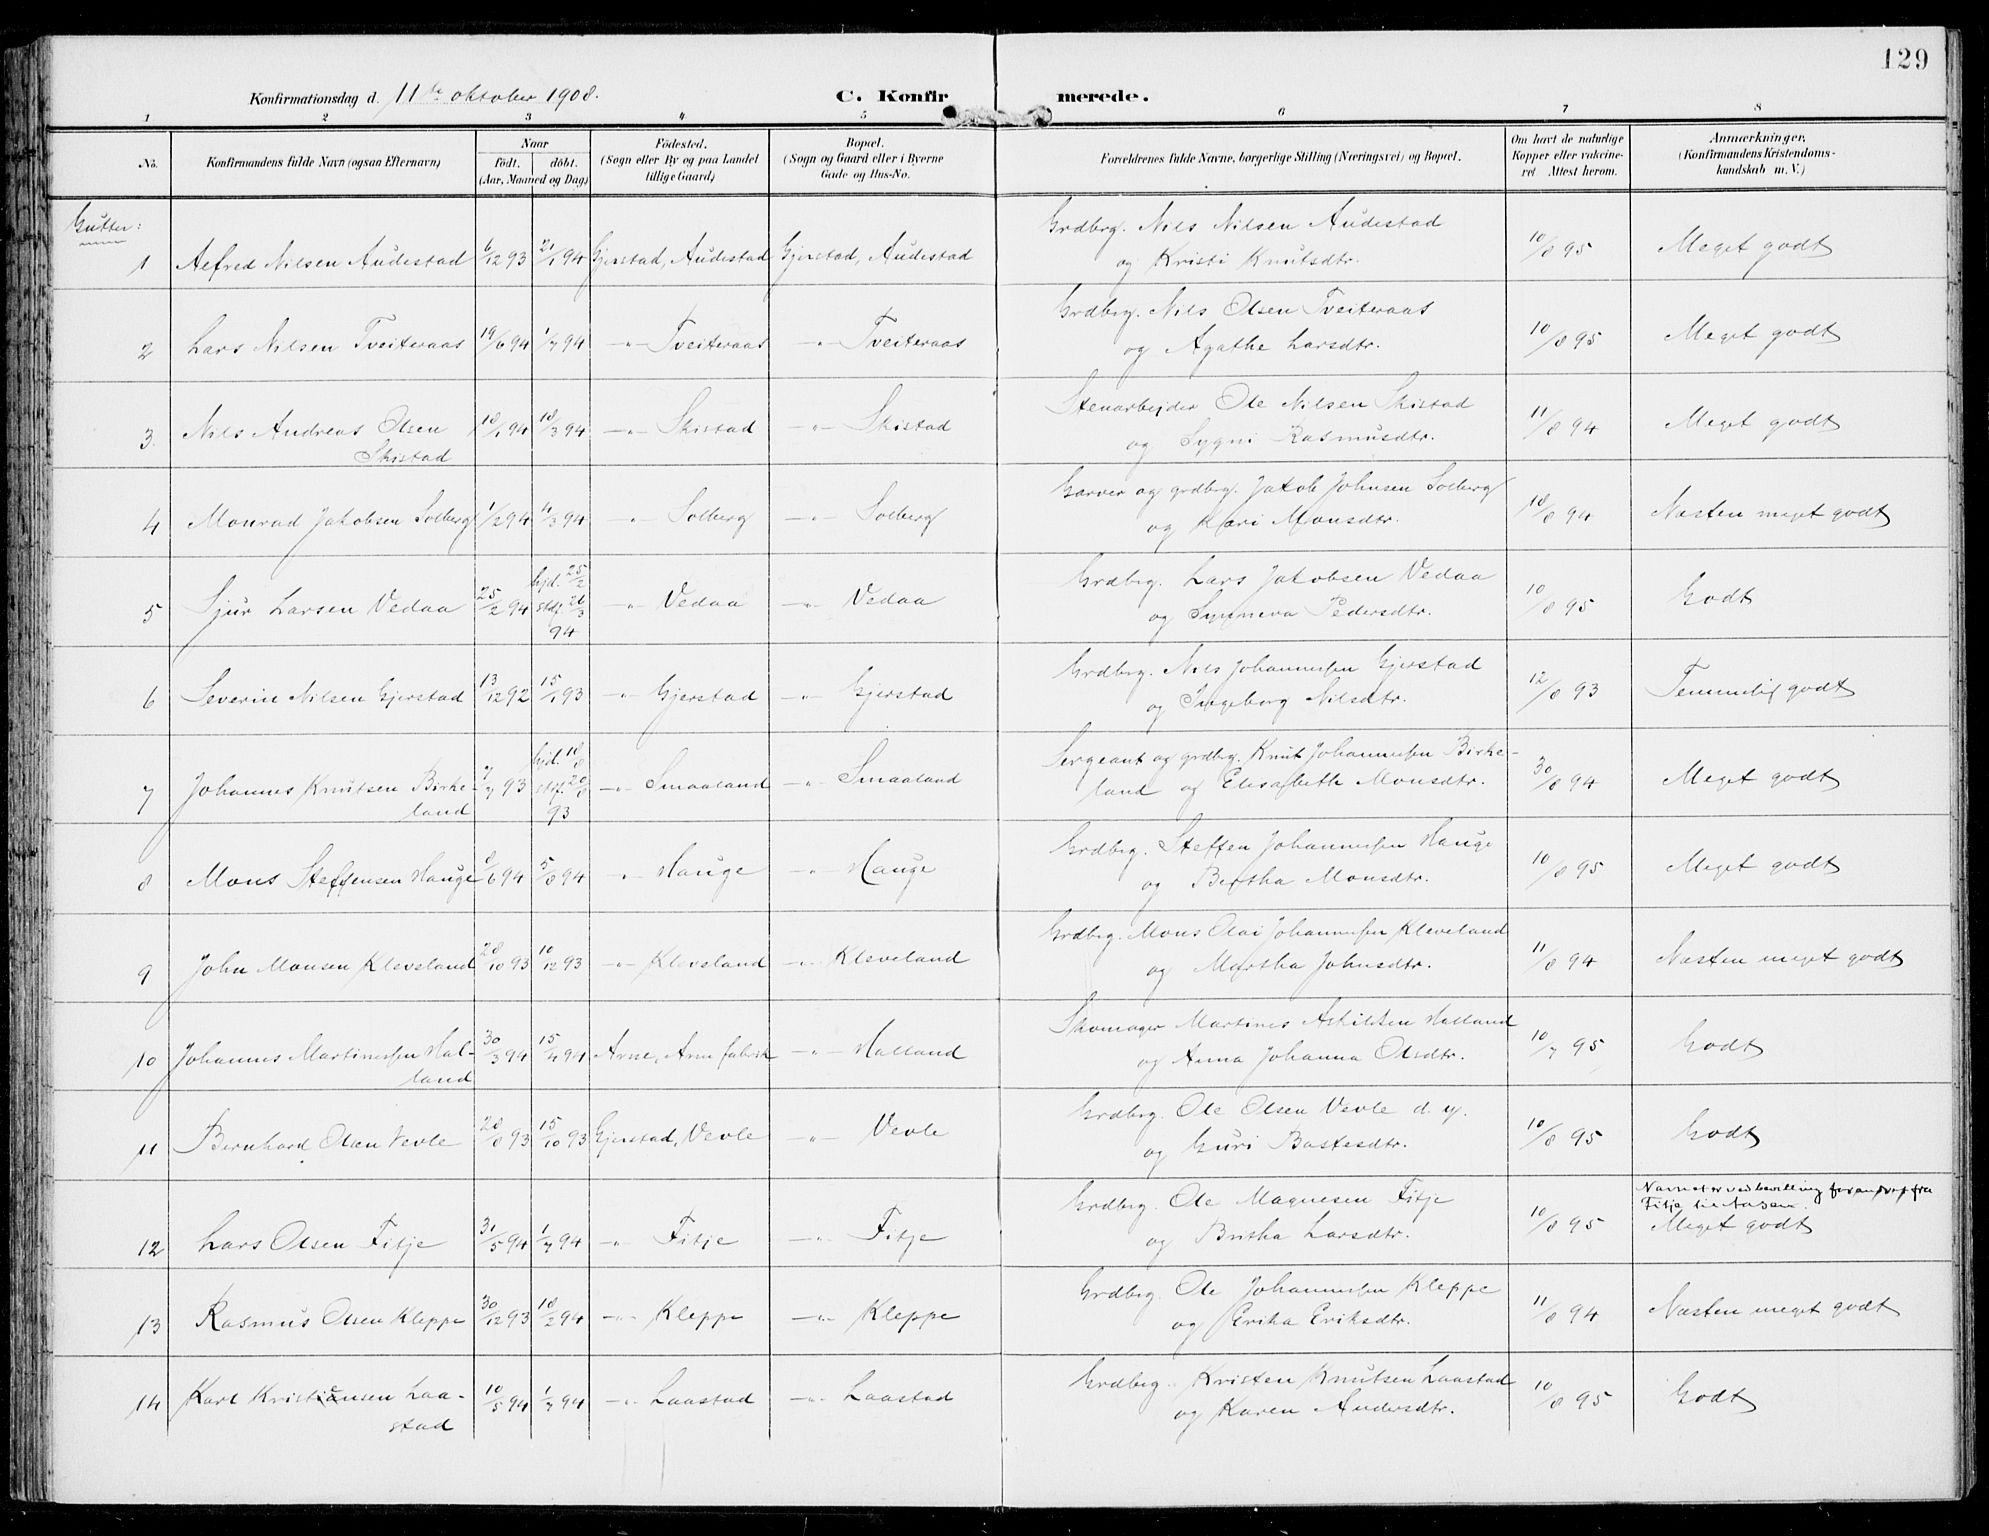 129
Konfirmationsdag d. 11te oktober 1908.
C. Konfirmerede.
1 2 3 4 5 6 7 8
No. Konfirmandens fulde Navn (ogsaa Efternavn) Naar födt. döbt. (Aar, Maaned og Dag) Födested. (Sogn eller By og paa Landet tillige Gaard) Bopæl. (Sogn og Gaard eller i Byerne Gade og Hus-No. Forældrenes fulde Navne, borgerlige Stilling (Næringsvei) og Bopæl. Om havt de naturlige Kopper eller vakcineret Attest herom. Anmærkninger. (Konfirmandens Kristendomskundskab m. V.)
Gutter:
1 Alfred Nilsen Audestad 6/12 93 21/1 94 Gjerstad, Audestad Gjerstad, Audestad Grdbrg. Nils Nilsen Audestad og Kristi Knutsdtr. 10/8 95 Meget godt
2 Lars Nilsen Tveiteraas 19/6 94 1/7 94 -"- Tveiteraas -"- Tveiteraas Grdbrg. Nils Olsen Tveiteraas og Agathe Larsdtr. 10/8 95 Meget godt
3 Nils Andreas Olsen Skistad 18/1 94 18/3 94 -"- Skistad -"- Skistad Stenarbejder Ole Nilsen Skistad og Sygni Rasmusdtr. 11/8 94 Meget godt
4 Monrad Jakobsen Solberg 1/2 94 4/3 94 -"- Solberg -"- Solberg Garver og grdbrg. Jakob Johnsen Solberg og Kari Monsdtr. 18/8 94 Næsten meget godt
5 Sjur Larsen Vedaa 25/2 94 hjd. 25/2 stdf. 26/3 94 -"- Vedaa -"- Vedaa Grdbrg. Lars Jakobsen Vedaa og Synneva Pedersdtr. 10/8 95 Godt
6 Severin Nilsen Gjerstad 13/12 92 15/1 93 -"- Gjerstad -"- Gjerstad Grdbrg. Nils Johannessen Gjerstad og Ingeborg Nilsdtr. 12/8 93 Temmelig godt
7 Johannes Knutsen Birkeland 7/7 93 hjd. 18/8 stdf. 20/8 93 -"- Smaaland -"- Smaaland Sergeant og grdbrg. Knut Johannessen Birkeland og Elisabeth Monsdtr. 30/8 94 Meget godt
8 Mons Steffensen Hauge 8/6 94 5/8 94 -"- Hauge -"- Hauge Grdbrg. Steffen Johannessen Hauge og Bertha Monsdtr. 10/8 95 Meget godt
9 John Monsen Kleveland 28/10 93 10/12 93 -"- Kleveland -"- Kleveland Grdbrg. Mons Olai Johannessen Kleveland og Martha Johnsdtr. 11/8 94 Næsten meget godt
10 Johannes Martinessen Halland 30/3 94 15/4 94 Arne, Arne fabrik -"- Halland Skomager Martines Askildsen Halland og Anna Johanna Olsdtr. 10/7 95 Godt
11 Bernhard Olsen Vevle 28/8 93 15/10 93 Gjerstad, Vevle -"- Vevle Grdbrg. Ole Olsen Vevle d. y. og Guri Bastesdtr. 10/8 95 Godt
12 Lars Olsen Fitje 31/5 94 1/7 94 -"- Fitje -"- Fitje Grdbrg. Ole Magnesen Fitje og Britha Larsdtr. 10/8 95 Navnet er ved bevilling forandret fra Fitje til Aasen. Meget godt
13 Rasmus Olsen Kleppe 30/12 93 18/2 94 -"- Kleppe -"- Kleppe Grdbrg. Ole Johannessen Kleppe og Erika Eriksdtr. 11/8 94 Næsten meget godt
14 Karl Kristensen Laastad 10/5 94 1/7 94 -"- Laastad -"- Laastad Grdbrg. Kristen Knutsen Laastad og Karen Andersdtr. 10/8 95 Godt